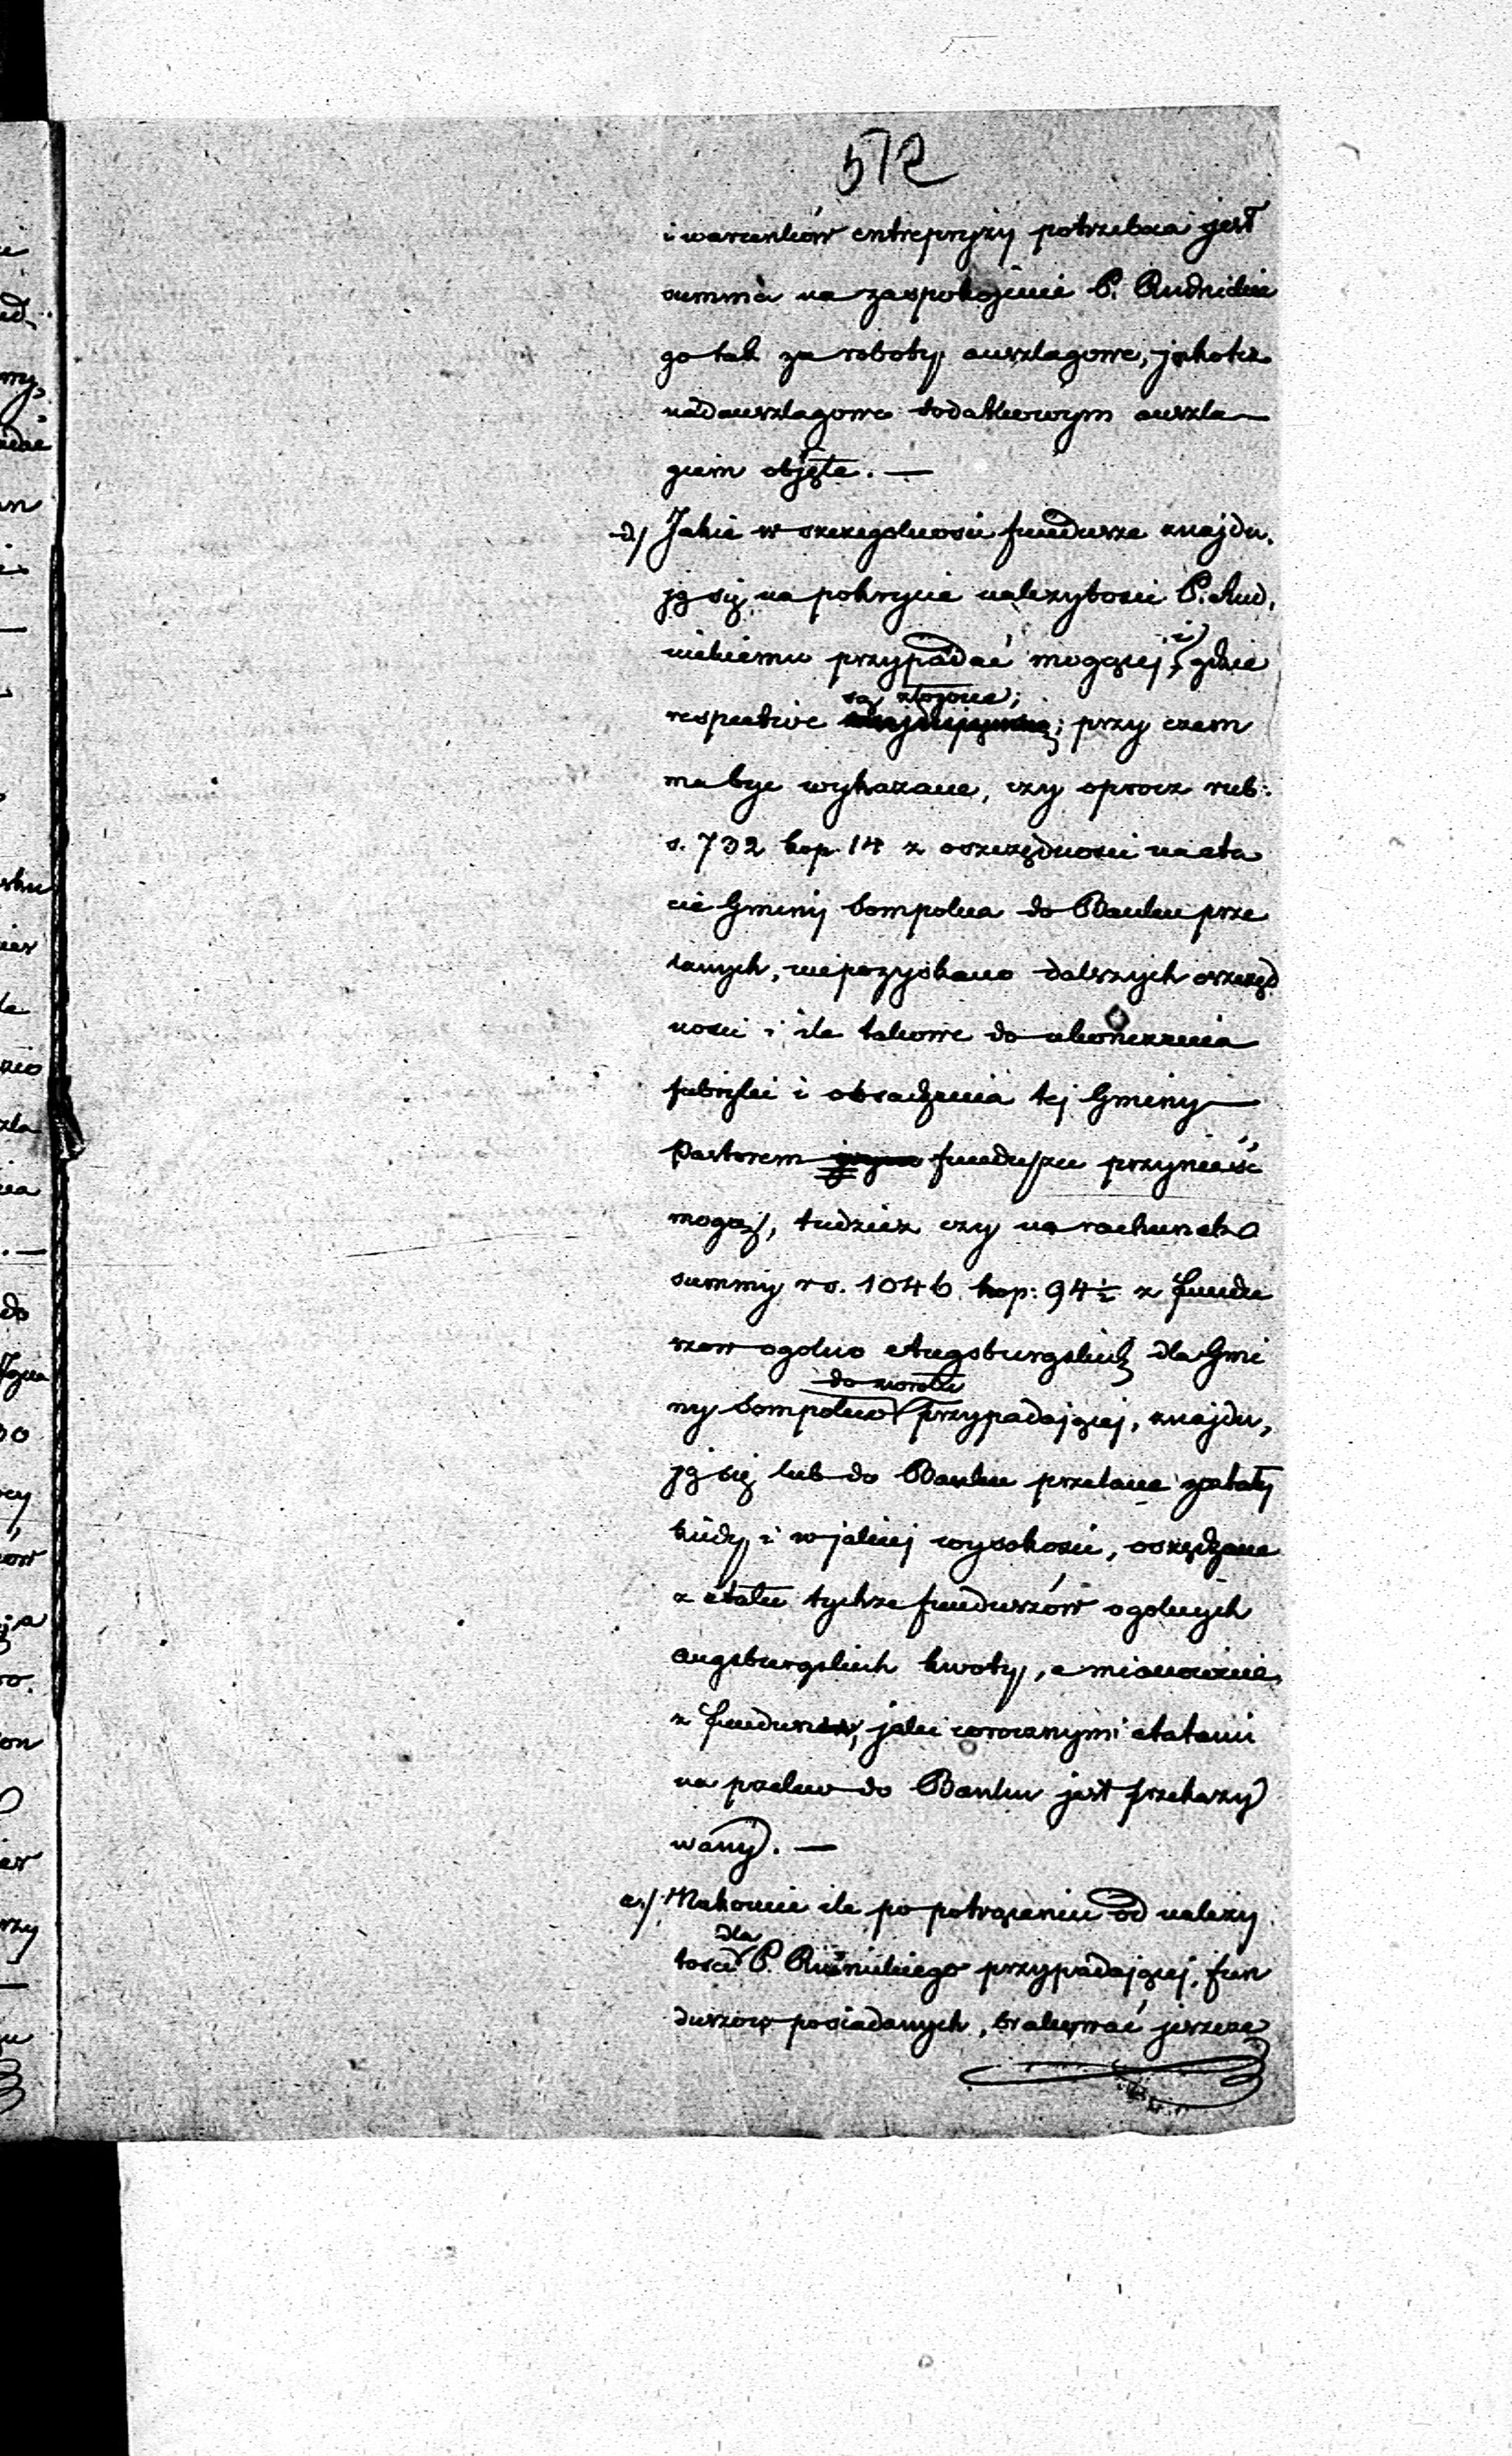 572
i warunków entrepryzy potrzebna jest
summa na zaspokojenie P. Rudnickie
go tak za roboty anszlagowe, jakoteż
nadanszlagowe dodatkowym anszla—
giem objęte. —
d/ Jakie w szczegolnosci fundusze znajdu,
ją się na pokrycie należytosci P. Rud,
nickiemu przypadać mogącej, i gdzie
są złożone;
respective przy czem
ma byc wykazane, czy oprocz rub:
s. 732 kop. 14 z oszczędnosci na eta
cie Gminy Sompolna do Banku prze
lanych, niepozyskano dalszych oszczęd
nosci i ile takowe do ukonczenia
fabryki i obsadzenia tej Gminy —
Pastorem funduszu przynieść
mogą, tudzież czy na rachunek
summy rs. 1046 kop: 94½ z fundu
szow ogolno Augsburgskich dla Gmi
do zwrotu
ny Sompolno przypadającej, znajdu,
ją się lub do Banku przelane zostały
kiedy i w jakiej wysokosci, oszczędzone
z etatu tychze funduszów ogolnych
augsburgskich kwoty, a mianowicie
z funduszu, jaki corocznymi etatami
na przelew do Banku jest przekazy
wany. —
e./ Nakoniec ile po potrąceniu od należy
dla
tosci P. Rudnickiego przypadającej, fun
duszow posiadanych, brakować jeszcze